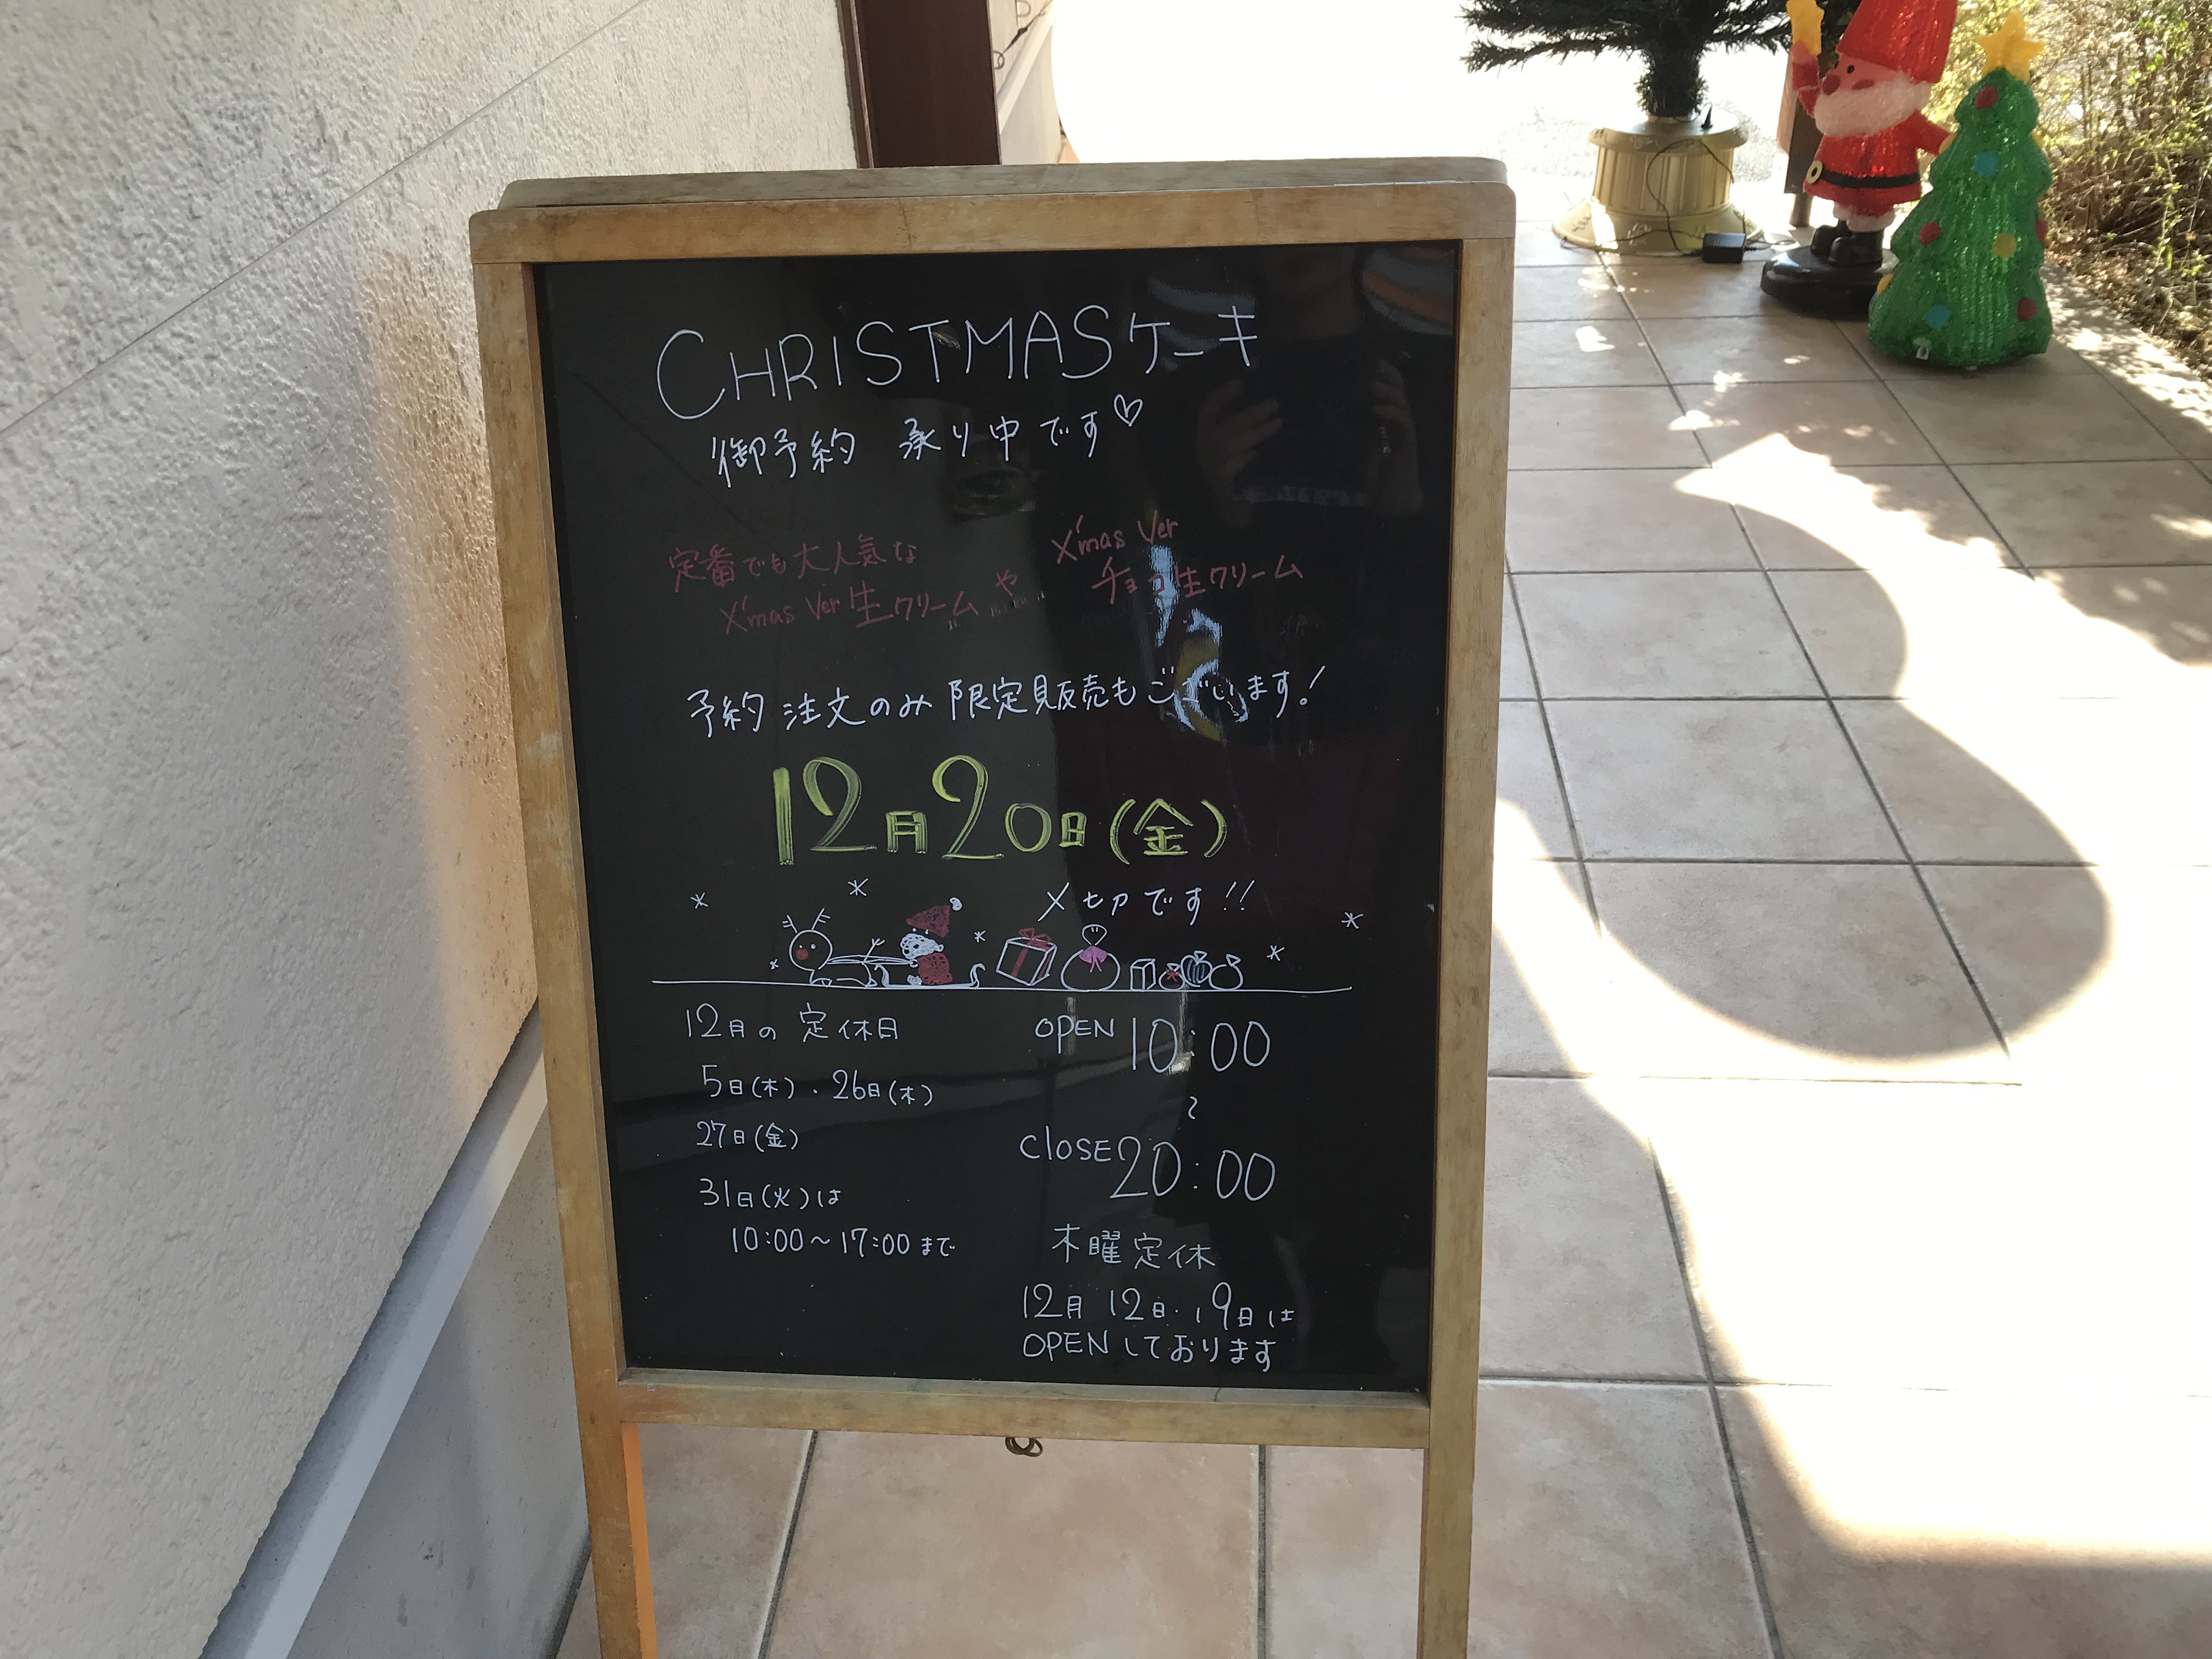 CHRISTMASケーキ
御予約 承り中です♡
定番でも大人気な
X'mas Ver 生クリーム や
X'mas Ver
チョコ生クリーム
予約 注文のみ 限定販売もございます!
12月20日(金)
〆切です!!
12月の 定休日
5日(木)・26日(木)
27日(金)
31日(火)は
10:00~17:00まで
OPEN 10:00
~
CLOSE 20:00
木曜定休
12月 12日・19日は
OPENしております